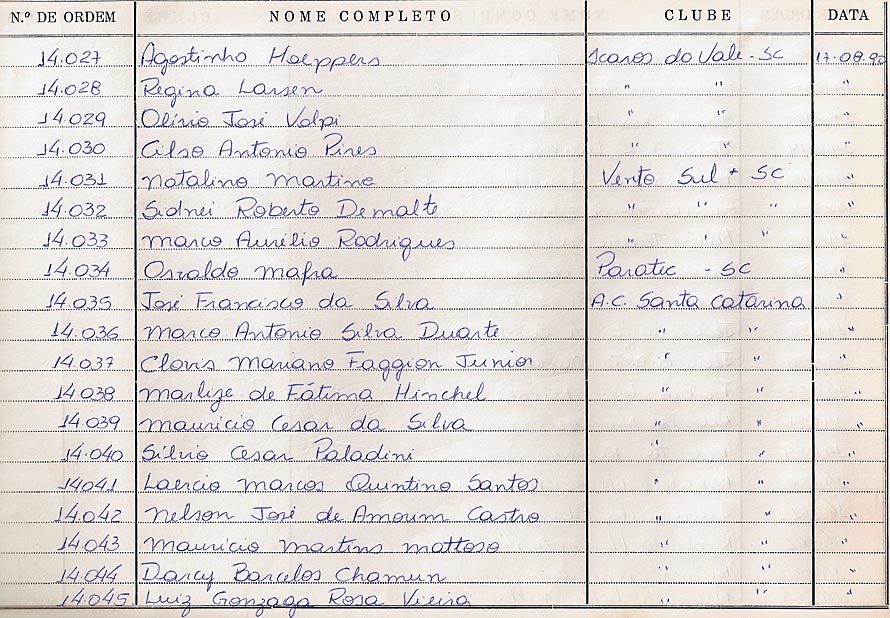 N.º DE ORDEM NOME COMPLETO CLUBE DATA
14.027 Agostinho Hoeppers Icaros do Vale - SC 17-08-90
14.028 Regina Larsen " " "
14.029 Olivio José Volpi " " "
14.030 Cilso Antonio Pires " " "
14.031 Natalino Martins Vento Sul - SC "
14.032 Sidnei Roberto Demalte " " " "
14.033 Marco Aurélio Rodrigues " " " "
14.034 Osvaldo Mafra Paratec - SC "
14.035 José Francisco da Silva A.C. Santa Catarina "
14.036 Marco Antonio Silva Duarte " " "
14.037 Clovis Mariano Faggion Junior " " "
14.038 Marlize de Fátima Hinchel " " "
14.039 Mauricio Cesar da Silva " " "
14.040 Silvio Cesar Paladini " " "
14041 Laercio Marcos Quintino Santos " " "
14.042 Nelson José de Amorim Castro " " "
14.043 Mauricio Martins Mattoso " " "
14.044 Darcy Barcelos Chamun " " "
14.045 Luiz Gonzaga Rosa Vieira " " "